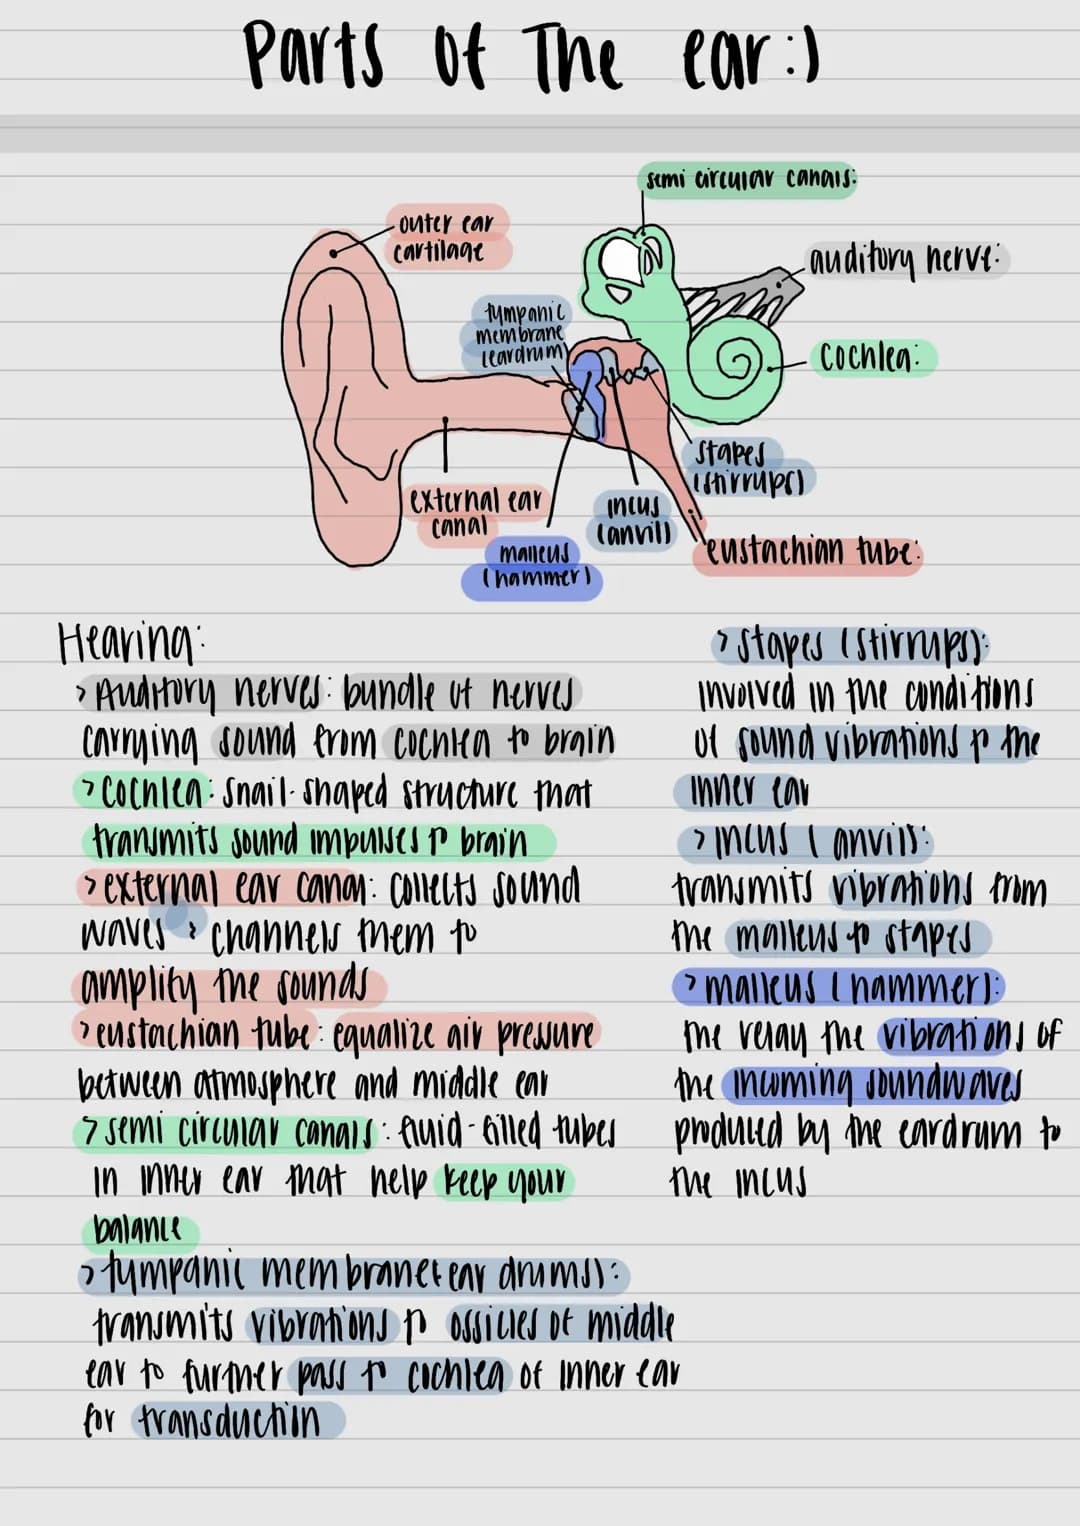 Parts of The ear:)
semi circular canals:
outer ear
cartilage
auditory nerve:
tympanic
membrane
(eardrum)
Cochlea:
stapes
(stirrups)
external ear
canal
incus
(anvil)
malleus
(hammer)
eustachian tube:
Hearing:
> Auditory nerves: bundle of nerves
carrying sound from cochlea to brain
> Cochlea: snail-shaped structure that
transmits sound impulses to brain
> external ear canal: collects sound
waves & channels them to
amplify the sounds
> eustachian tube: equalize air pressure
between atmosphere and middle ear
> semi circular canals: fluid-filled tubes
in inner ear that help keep your
balance
> tympanic membrane(ear drums):
transmits vibrations to ossicles of middle
ear to further pass to cochlea of inner ear
for transduction
> stapes (stirrups):
involved in the conditions
of sound vibrations to the
inner ear
> incus (anvil):
transmits vibrations from
the malleus to stapes
> malleus (hammer):
the relay the vibrations of
the incoming soundwaves
produced by the eardrum to
the incus